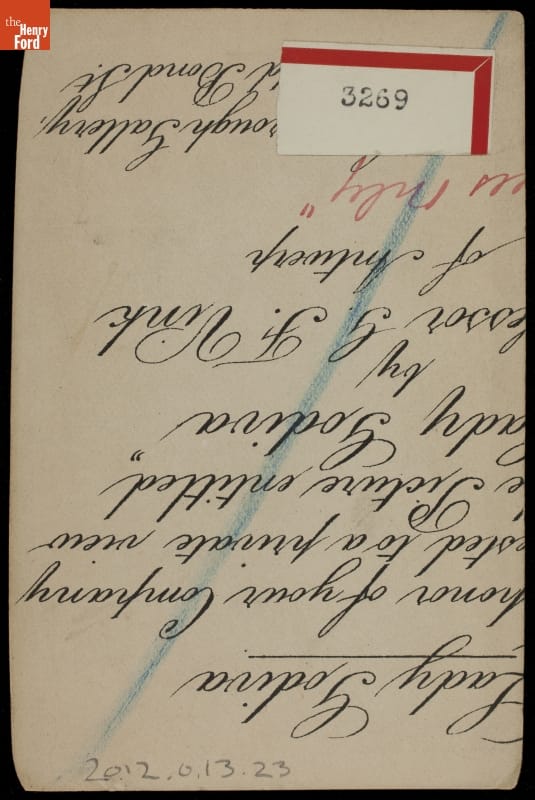 the
Henry
Ford
3269
Lady Godiva
honor of your Company
ested to a private view
e Picture entitled "
ady Godiva
by
essor G. F. Vink
of Antwerp
es Only"
rough Gallery,
d Bond St.
2012.0.13.23